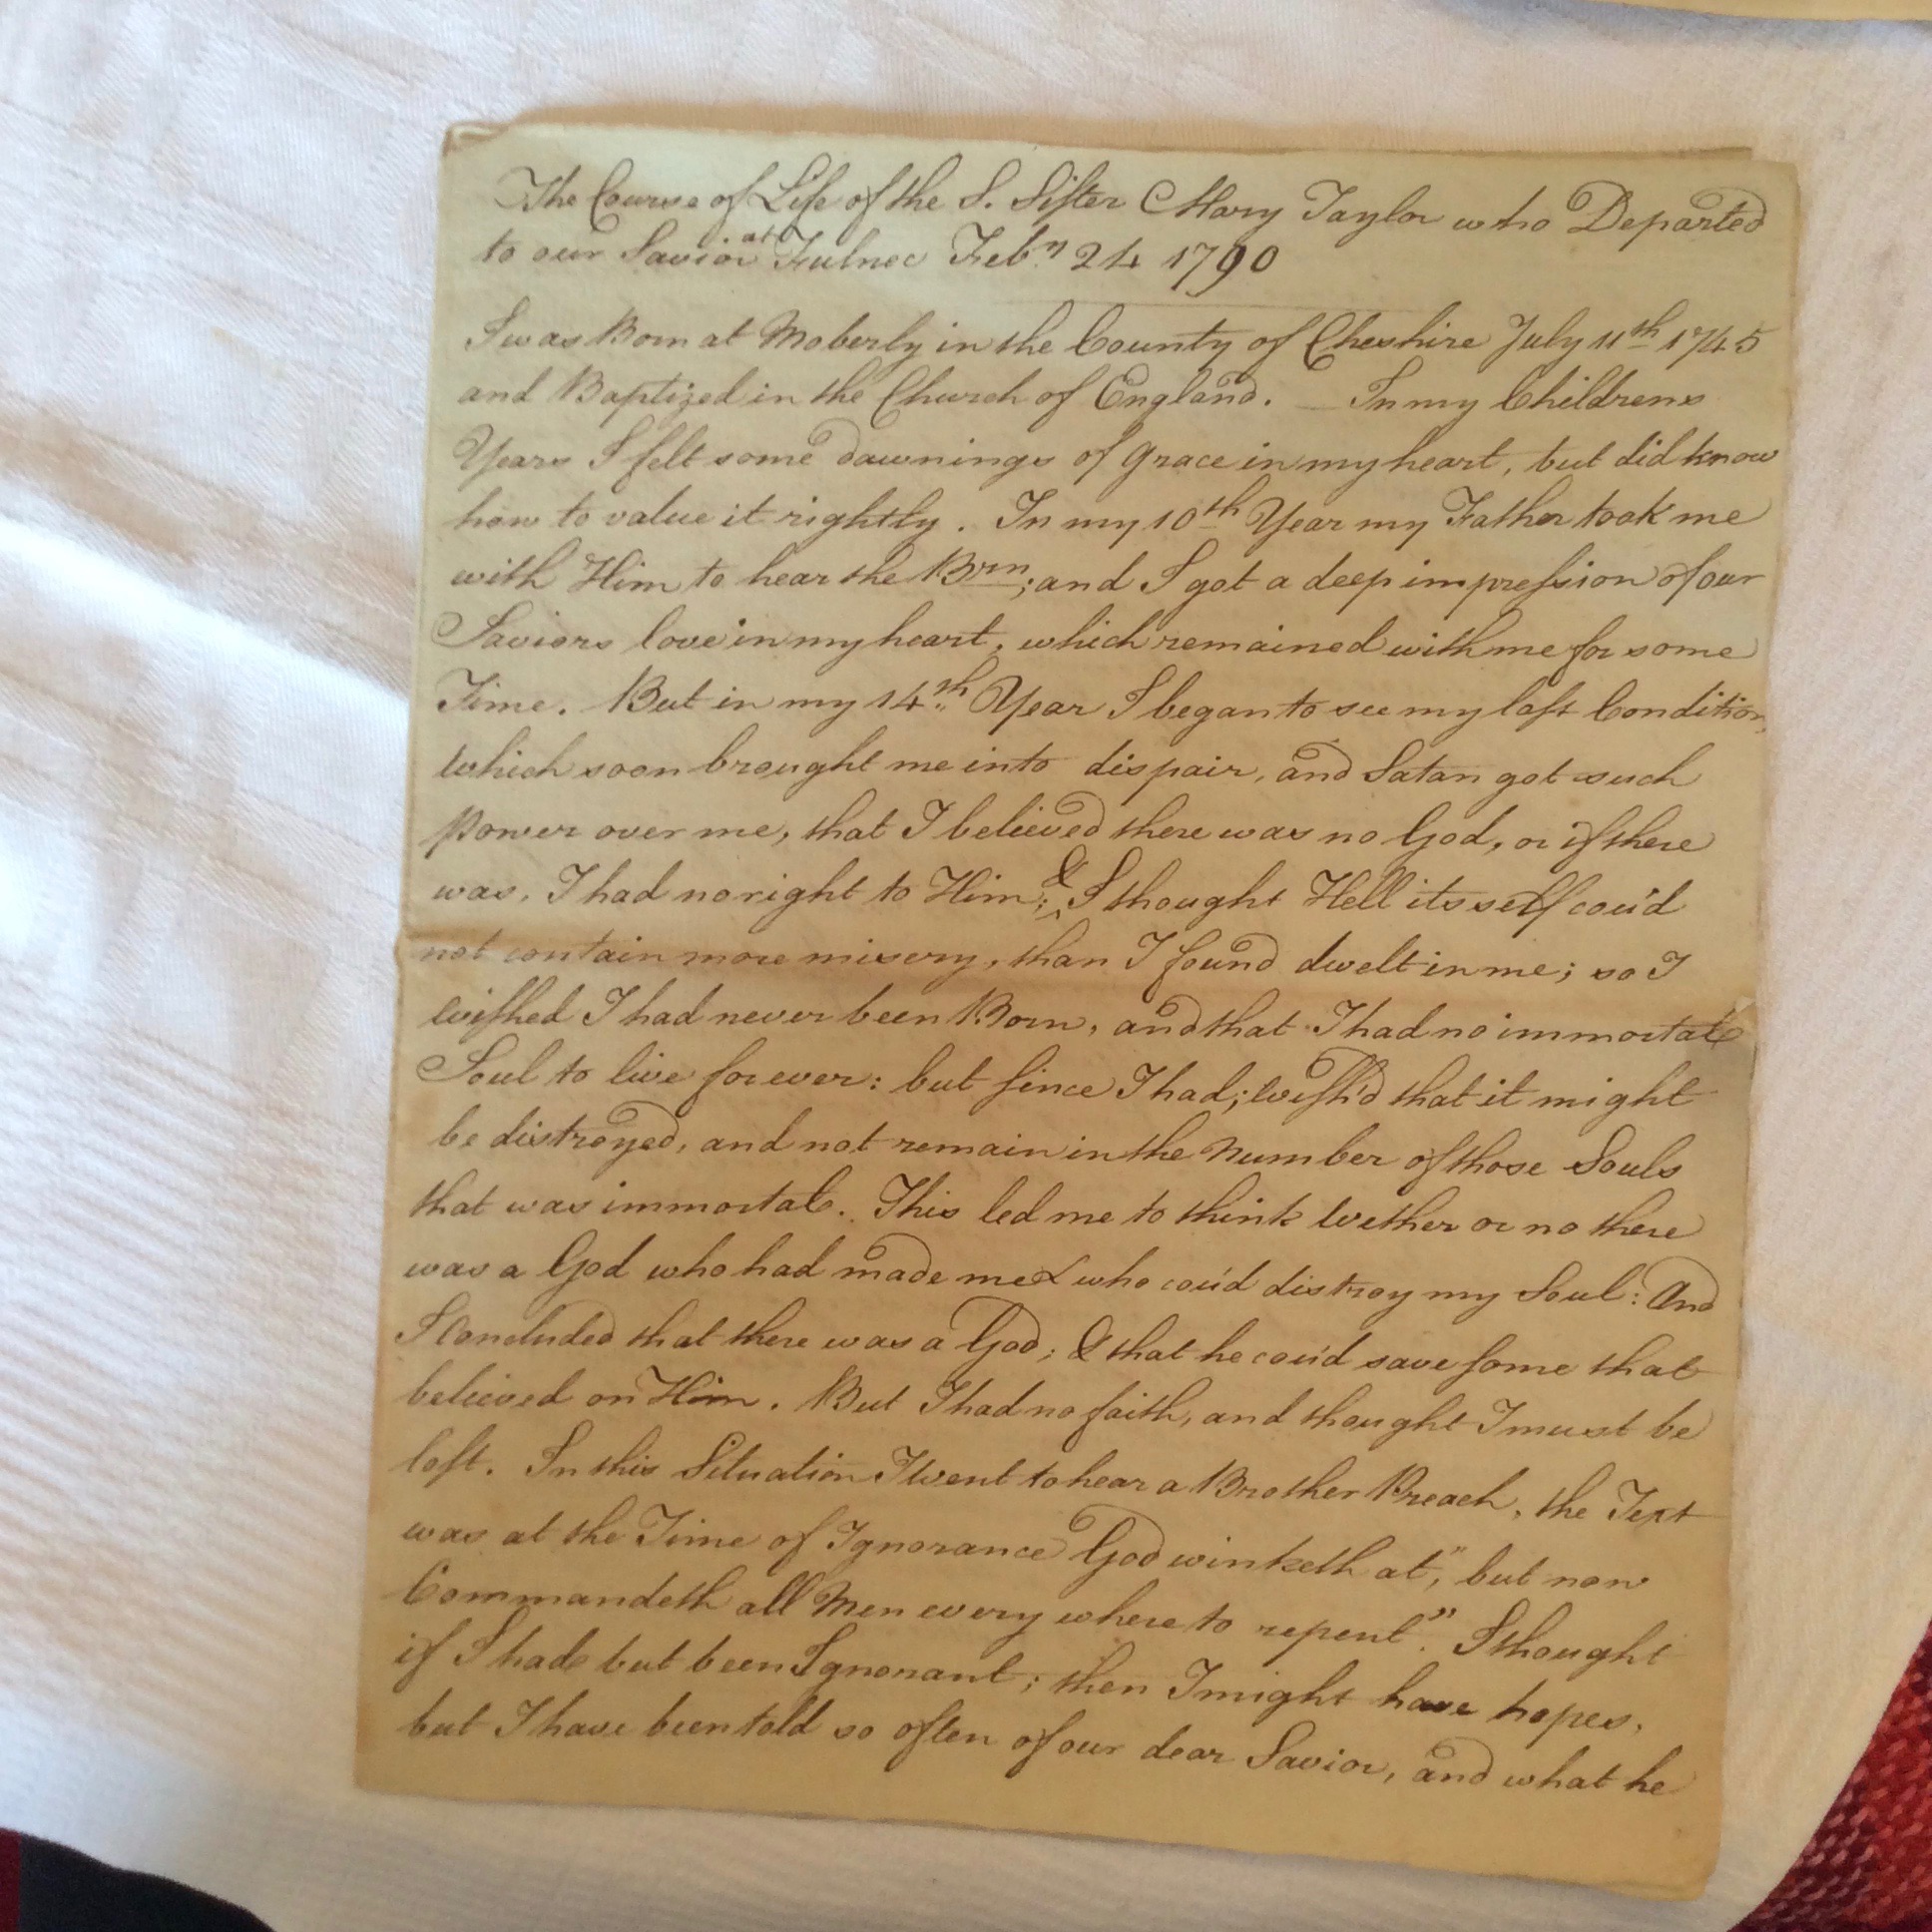 The Course of Life of the S. Sister Mary Taylor who Departed
to our Savior at Fulnec Febry 24 1790
I was Born at Moberly in the County of Cheshire July 11th 1745
and Baptized in the Church of England. — In my Childrens
Years I felt some dawnings of grace in my heart, but did know
how to value it rightly. In my 10th Year my Father took me
with Him to hear the Brn; and I got a deep impression of our
Saviors love in my heart, which remained with me for some
Time. But in my 14th Year I began to see my lost Condition,
which soon brought me into dispair, and Satan got such
power over me, that I believed there was no God, or if there
was, I had no right to Him; & I thought Hell its self cou'd
not contain more misery, than I found dwelt in me; so I
wished I had never been Born, and that I had no immortal
Soul to live for ever: but since I had; wish'd that it might
be distroyed, and not remain in the Number of those Souls
that was immortal. This led me to think wether or no there
was a God who had made me & who cou'd distroy my Soul: And
I Concluded that there was a God; & that he cou'd save some that
believed on Him. But I had no faith, and thought I must be
lost. In this Situation I went to hear a Brother Preach, the Text
was at the Time of Ignorance God winketh at", but now
Commandeth all Men every where to repent". I thought
if I had but been Ignorant; then I might have hopes,
but I have been told so often of our dear Savior, and what he